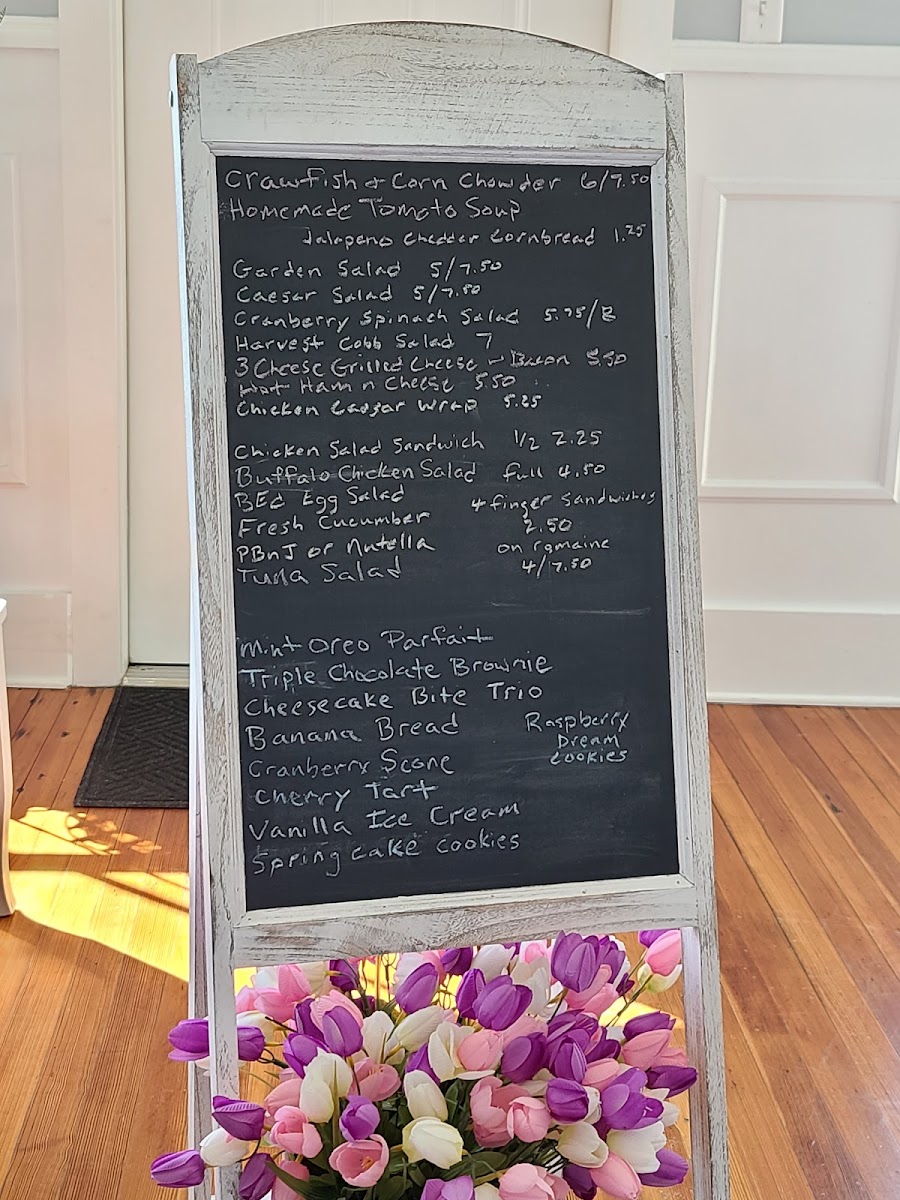 Crawfish & Corn Chowder 6/7.50
Homemade Tomato Soup
Jalapeno Cheddar Cornbread 1.25
Garden Salad 5/7.50
Caesar Salad 5/7.50
Cranberry Spinach Salad 5.75/8
Harvest Cobb Salad 7
3 Cheese Grilled Cheese - Bacon 5.50
Hot Ham n Cheese 5.50
Chicken Caesar Wrap 5.25
Chicken Salad Sandwich 1/2 2.25
Buffalo Chicken Salad full 4.50
BEd Egg Salad 4 finger sandwiches
Fresh Cucumber 2.50
PBnJ or Nutella on romaine
Tuna Salad 4/7.50
Mint Oreo Parfait
Triple Chocolate Brownie
Cheesecake Bite Trio
Banana Bread Raspberry
Dream
Cranberry Scone Cookies
Cherry Tart
Vanilla Ice Cream
Spring cake cookies